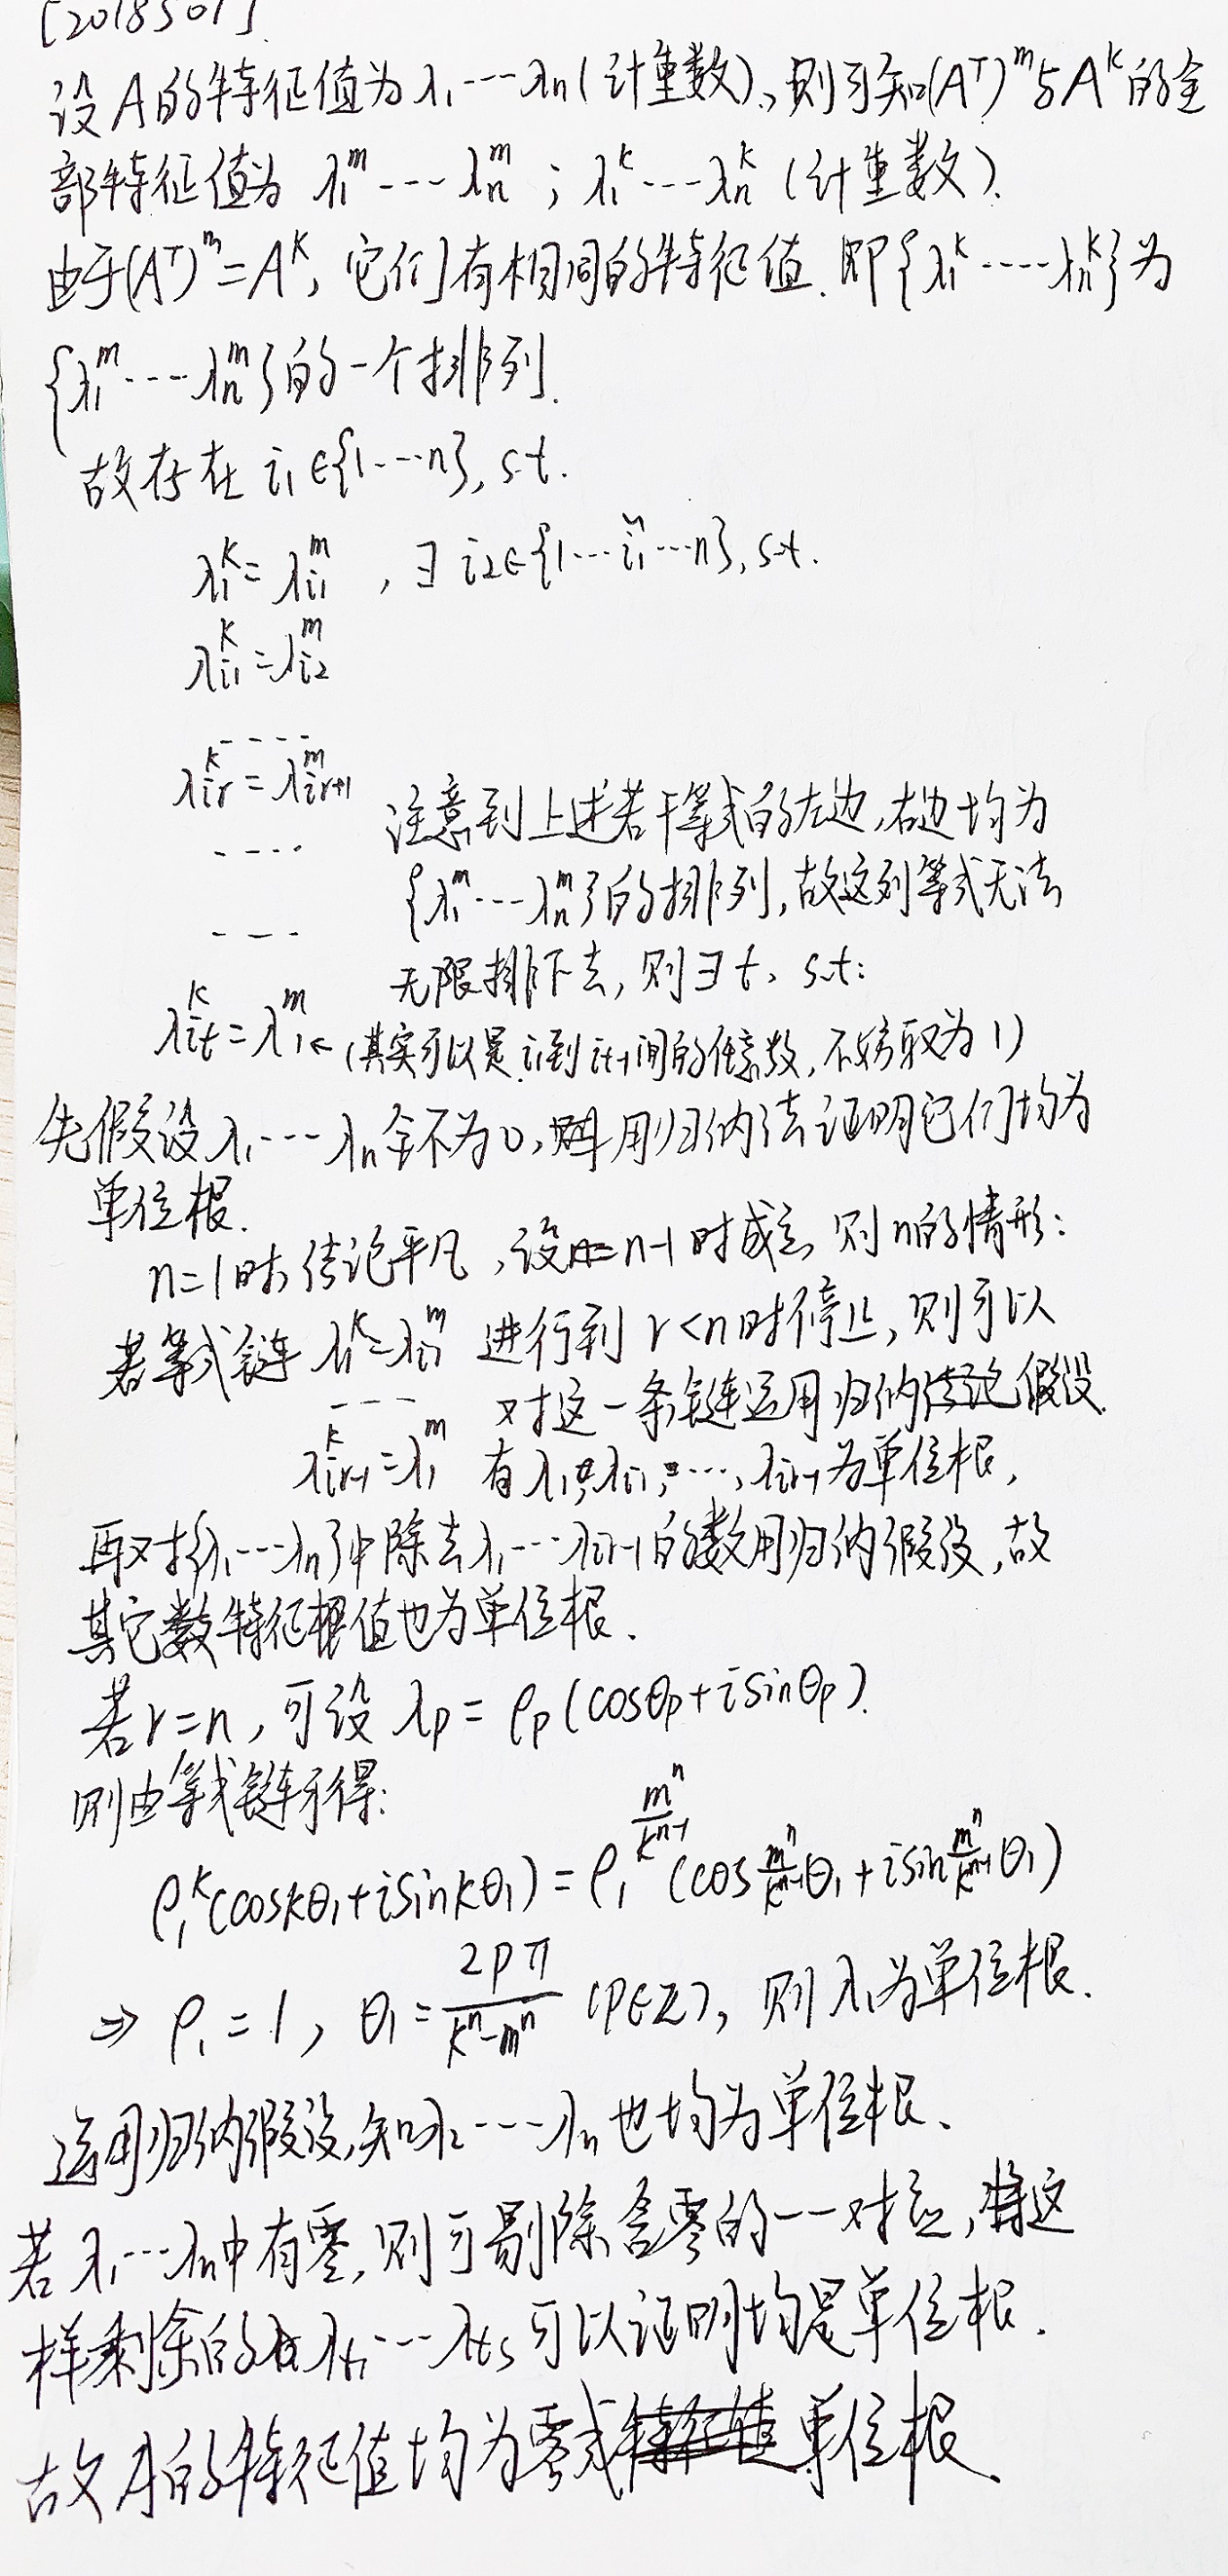 [2018S01]
设A的特征值为λ₁…λₙ(计重数), 则可知(Aᵀ)ᵐ与Aᵏ的全
部特征值为 λ₁ᵐ…λₙᵐ ; λ₁ᵏ…λₙᵏ (计重数).
由于(Aᵀ)ᵐ=Aᵏ, 它们有相同的特征值. 即{λ₁ᵏ…λₙᵏ}为
{λ₁ᵐ…λₙᵐ}的一个排列.
故存在 i₁∈{1…n}, s.t.
λ₁ᵏ=λ_{i₁}ᵐ , ∃ i₂∈{1…ǐ₁…n}, s.t.
λ_{i₁}ᵏ=λ_{i₂}ᵐ
----
λ_{ir}ᵏ=λ_{ir+1}ᵐ
注意到上述若干等式的左边,右边均为
{λ₁ᵐ…λₙᵐ}的排列, 故这列等式无法
无限排下去, 则∃t, s.t:
λ_{it}ᵏ=λ₁ᵐ (其实可以是i₁到i_{t-1}间的任意数, 不妨取为1)
先假设λ₁…λₙ全不为0, 用归纳法证明它们均为
单位根.
n=1时结论平凡, 设n=n-1时成立, 则n的情形:
若等式链 λ₁ᵏ=λ_{i₁}ᵐ 进行到 r<n时停止, 则可以
--- 对这一条链运用归纳假设.
λ_{ir-1}ᵏ=λ₁ᵐ 有λ₁,λ_{i₁},…,λ_{ir-1}为单位根,
再对{λ₁…λₙ}中除去λ₁…λ_{ir-1}的数用归纳假设, 故
其它特征值也为单位根.
若r=n, 可设 λ_p=ρ_p(cosθ_p+isinθ_p).
则由等式链可得:
ρ₁ᵏ(coskθ₁+isinkθ₁)=ρ₁^{mⁿ/kⁿ⁻¹}(cos mⁿ/kⁿ⁻¹ θ₁+isin mⁿ/kⁿ⁻¹ θ₁)
⇒ ρ₁=1, θ₁=2pπ/(kⁿ-mⁿ) (p∈Z), 则λ₁为单位根.
运用归纳假设,知λ₂…λₙ也均为单位根.
若λ₁…λₙ中有零, 则可剔除含零的一一对应, 这
样剩余的λ_{t₁}…λ_{ts}可以证明均是单位根.
故A的特征值均为零或单位根.